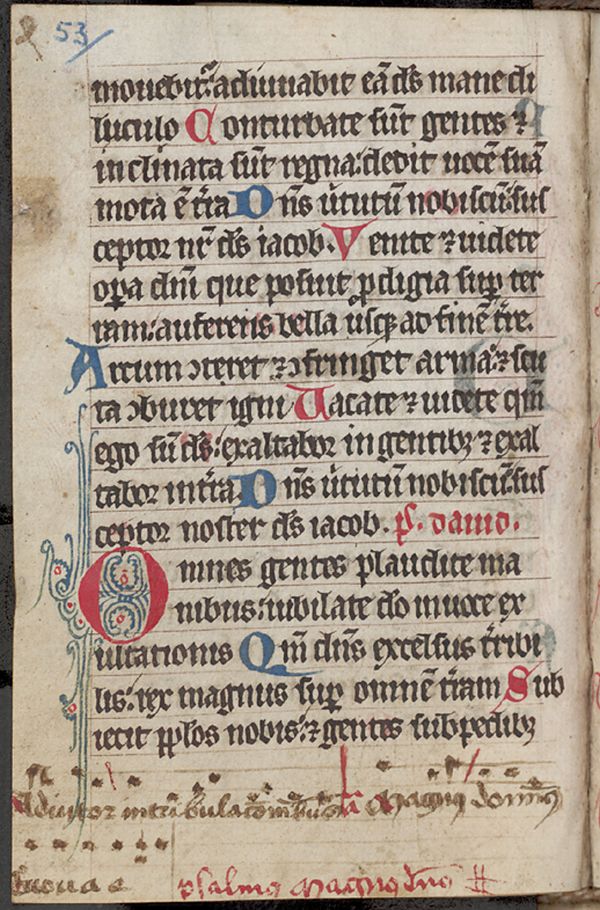 53
mouebit᷑: adiuuabit eā ds̄ mane di
luculo Conturbate sūt gentes ⁊
inclinata sūt regna: dedit uocē suā
mota ē t̄ra Dn̄s ũtutū nobiscū: sus
ceptor nr̄ ds̄ iacob. Venite ⁊ uidete
oꝑa dn̄i que posuit ꝓdigia suꝑ ter
ram: auferens bella usqꝫ ad finē t̄re.
Arcum ↄteret ⁊ ↄfringet arma: ⁊ scu
ta ↄburet igni Uacate ⁊ uidete qm̄
ego sū ds̄: exaltabor in gentibꝫ ⁊ exal
tabor in t̄ra Dn̄s ũtutū nobiscū: sus
ceptor noster ds̄ iacob. p̄s. dauid.
Omnes gentes plaudite ma
nibus: iubilate deo in uoce ex
ultationis Qm̄ dn̄s excelsus t̄ribi
lis: rex magnus suꝑ omnē t̄ram Sub
iecit pp̄los nobis: ⁊ gentes sub pedibꝫ
Adiutor in tribulacōnibus a̅ Magnꝰ dominꝰ
euouae psalmꝰ Magnꝰ dn̄s